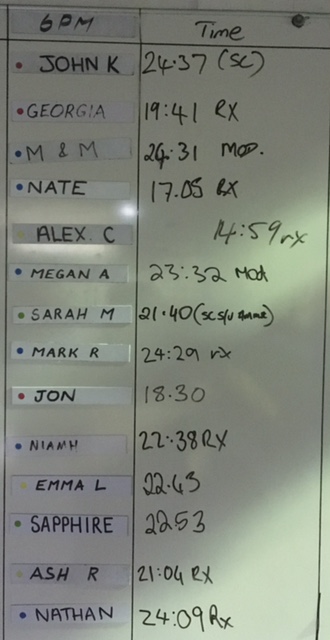 6PM Time
JOHN K 24.37 (SC)
GEORGIA 19:41 RX
M & M 24.31 MOD.
NATE 17.05 RX
ALEX. C 14:59 rx
MEGAN A 23:32 Mod
SARAH M 21.40 (sc s/u
MARK R 24:29 rx
JON 18.30
NIAMH 22:38 RX
EMMA L 22.43
SAPPHIRE 22 53
ASH R 21:04 RX
NATHAN 24:09 Rx